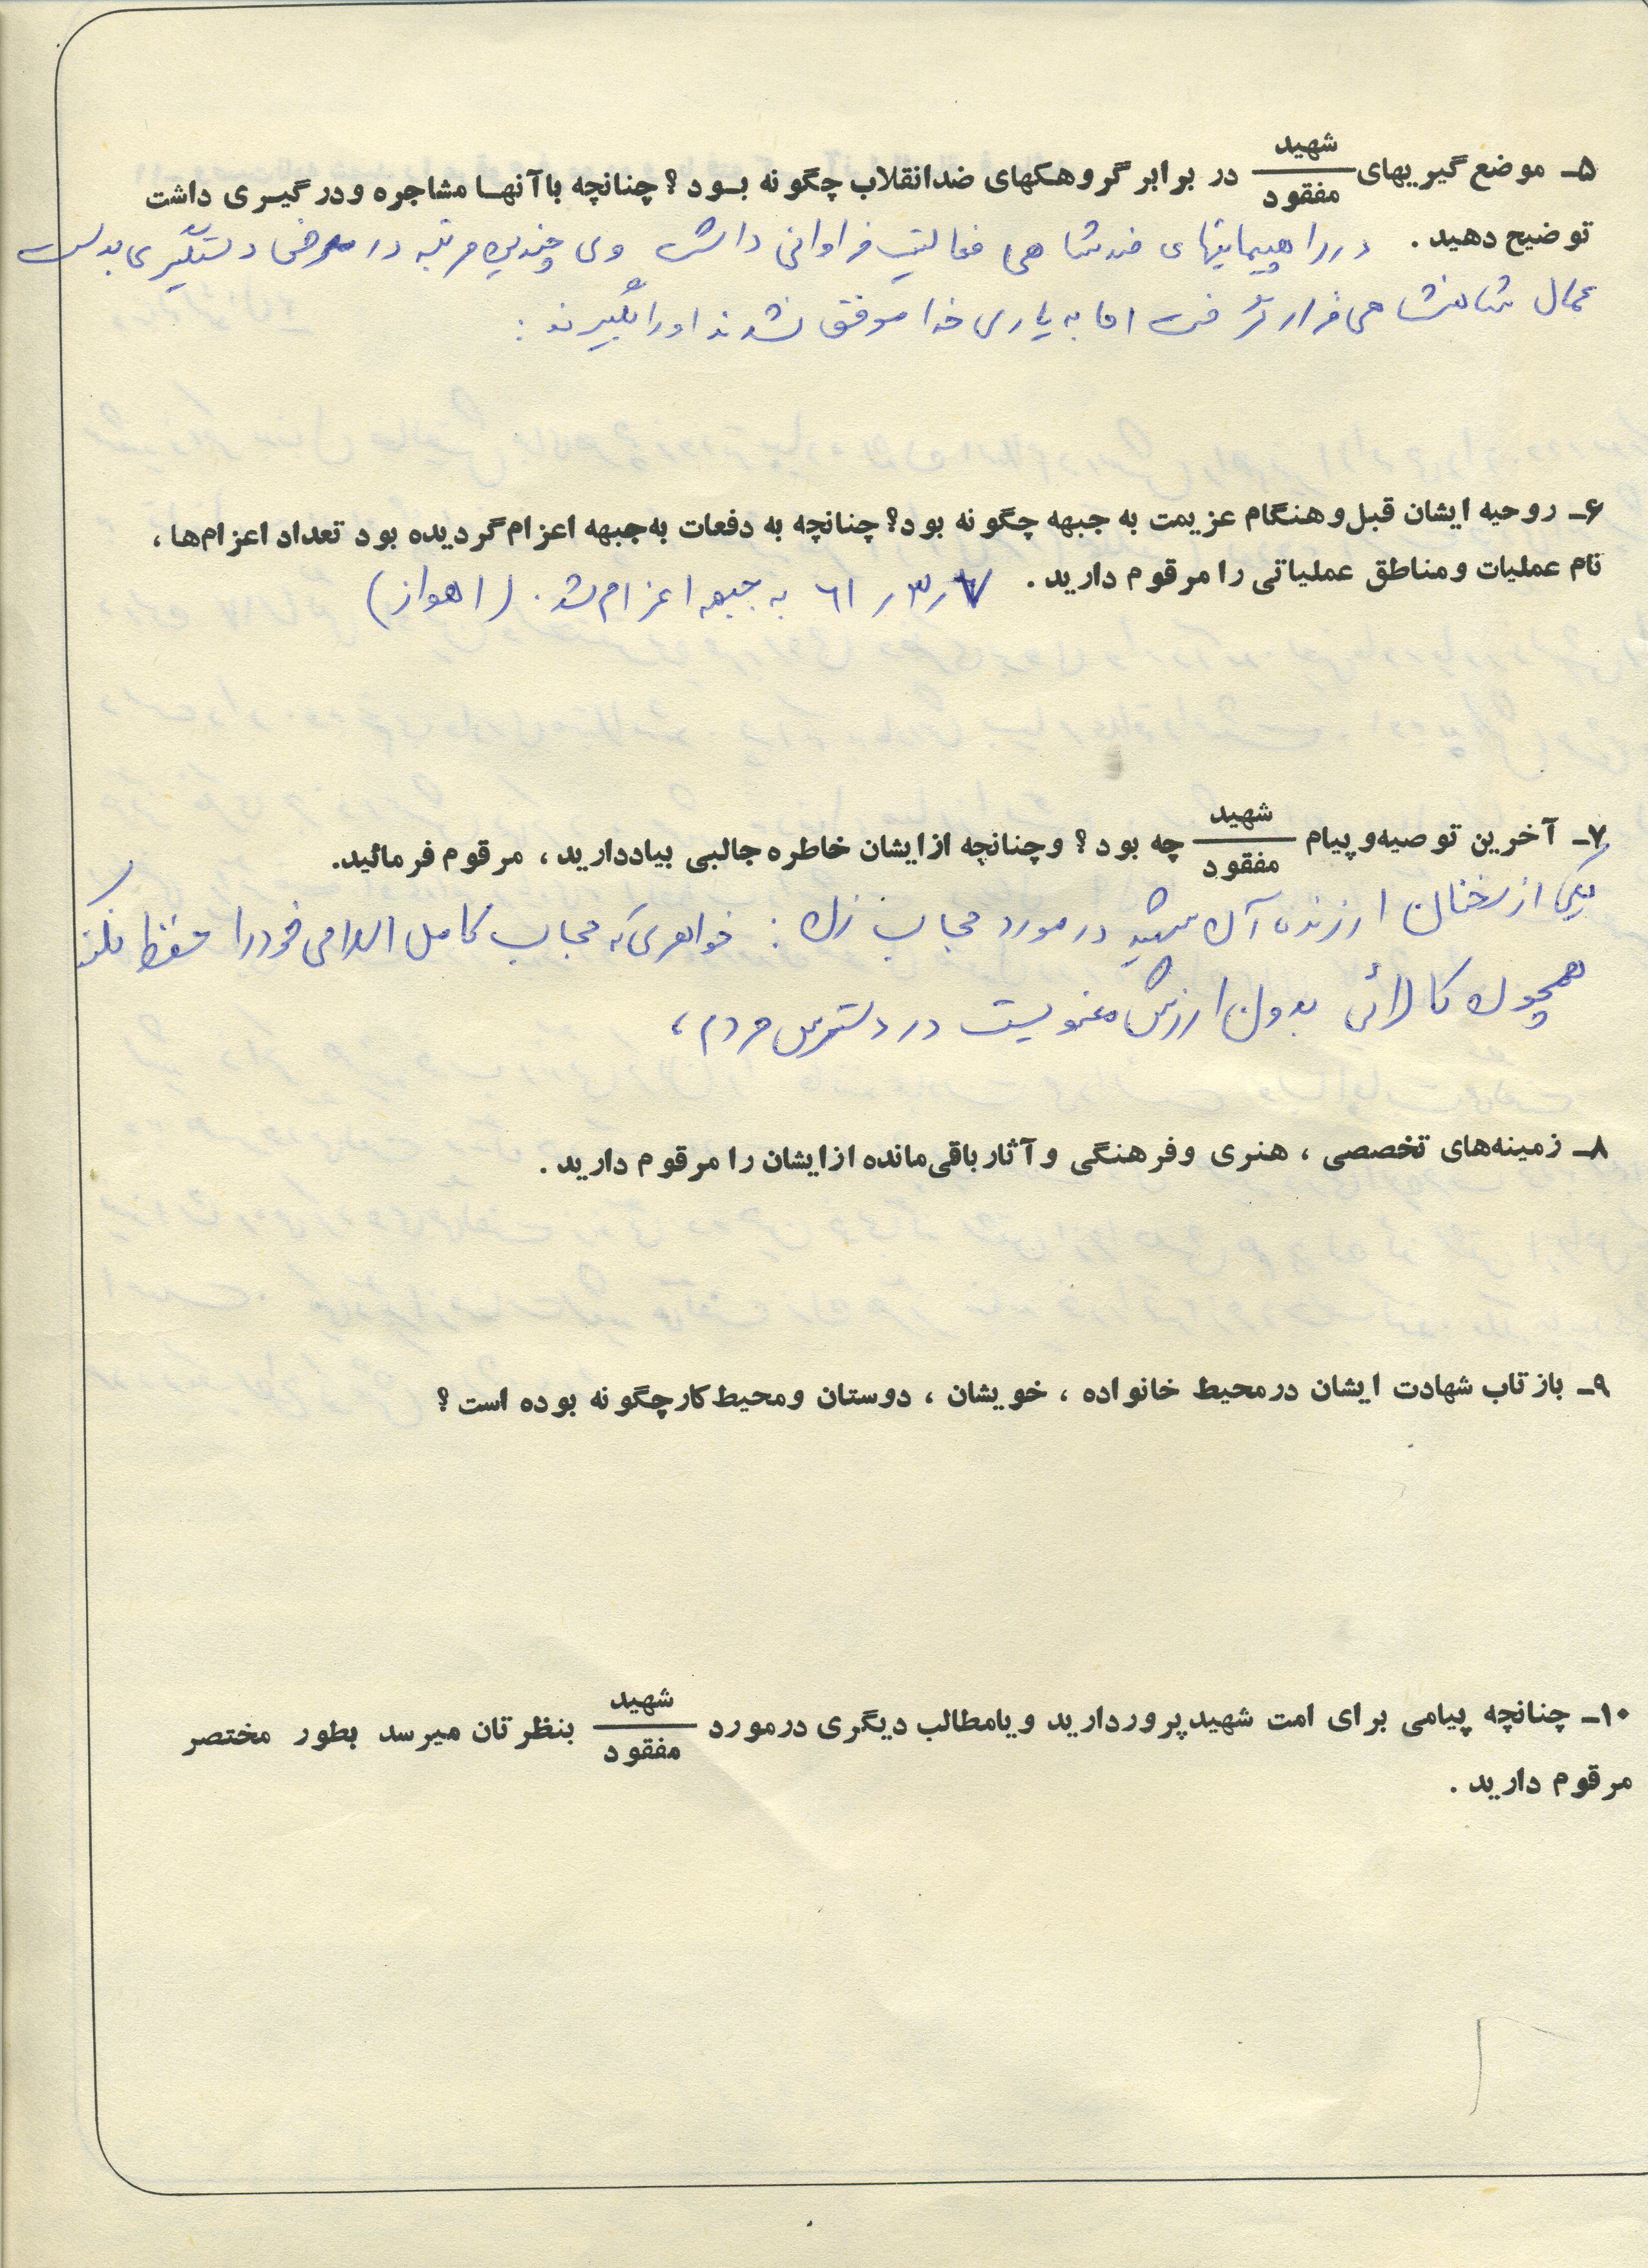 ۵ـ موضع‌گیریهای شهید/مفقود در برابر گروهکهای ضدانقلاب چگونه بـود؟ چنانچه باآنهـا مشاجره ودرگیـری داشت
توضیح دهید. در راهپیمایی‌های ضد شاهی فعالیت فراوانی داشت وی چندین مرتبه در معرض دستگیری بدست
عمال شاهنشاهی قرار گرفت اما به یاری خدا موفق نشدند او را بگیرند.
۶ـ روحیه ایشان قبل‌وهنگام عزیمت به جبهه چگونه بود؟ چنانچه به دفعات به‌جبهه اعزام‌گردیده بود تعداد اعزام‌ها،
نام عملیات ومناطق عملیاتی را مرقوم دارید. ر ۳ ر ۶۱ به جبهه اعزام شد. (اهواز)
۷ـ آخرین توصیه‌وپیام شهید/مفقود چه بود؟ وچنانچه ازایشان خاطره جالبی بیاددارید، مرقوم فرمائید.
یکی از سخنان ارزنده آن شهید در مورد حجاب زن: خواهری که حجاب کامل اسلامی خود را حفظ نکند
همچون کالائی بدون ارزش معنویست در دسترس مردم،
۸ـ زمینه‌های تخصصی، هنری وفرهنگی وآثار باقی‌مانده ازایشان را مرقوم دارید.
۹ـ بازتاب شهادت ایشان درمحیط خانواده، خویشان، دوستان ومحیط‌کار چگونه بوده است؟
۱۰ـ چنانچه پیامی برای امت شهیدپرور دارید ویامطالب دیگری درمورد شهید/مفقود بنظرتان میرسد بطور مختصر
مرقوم دارید.